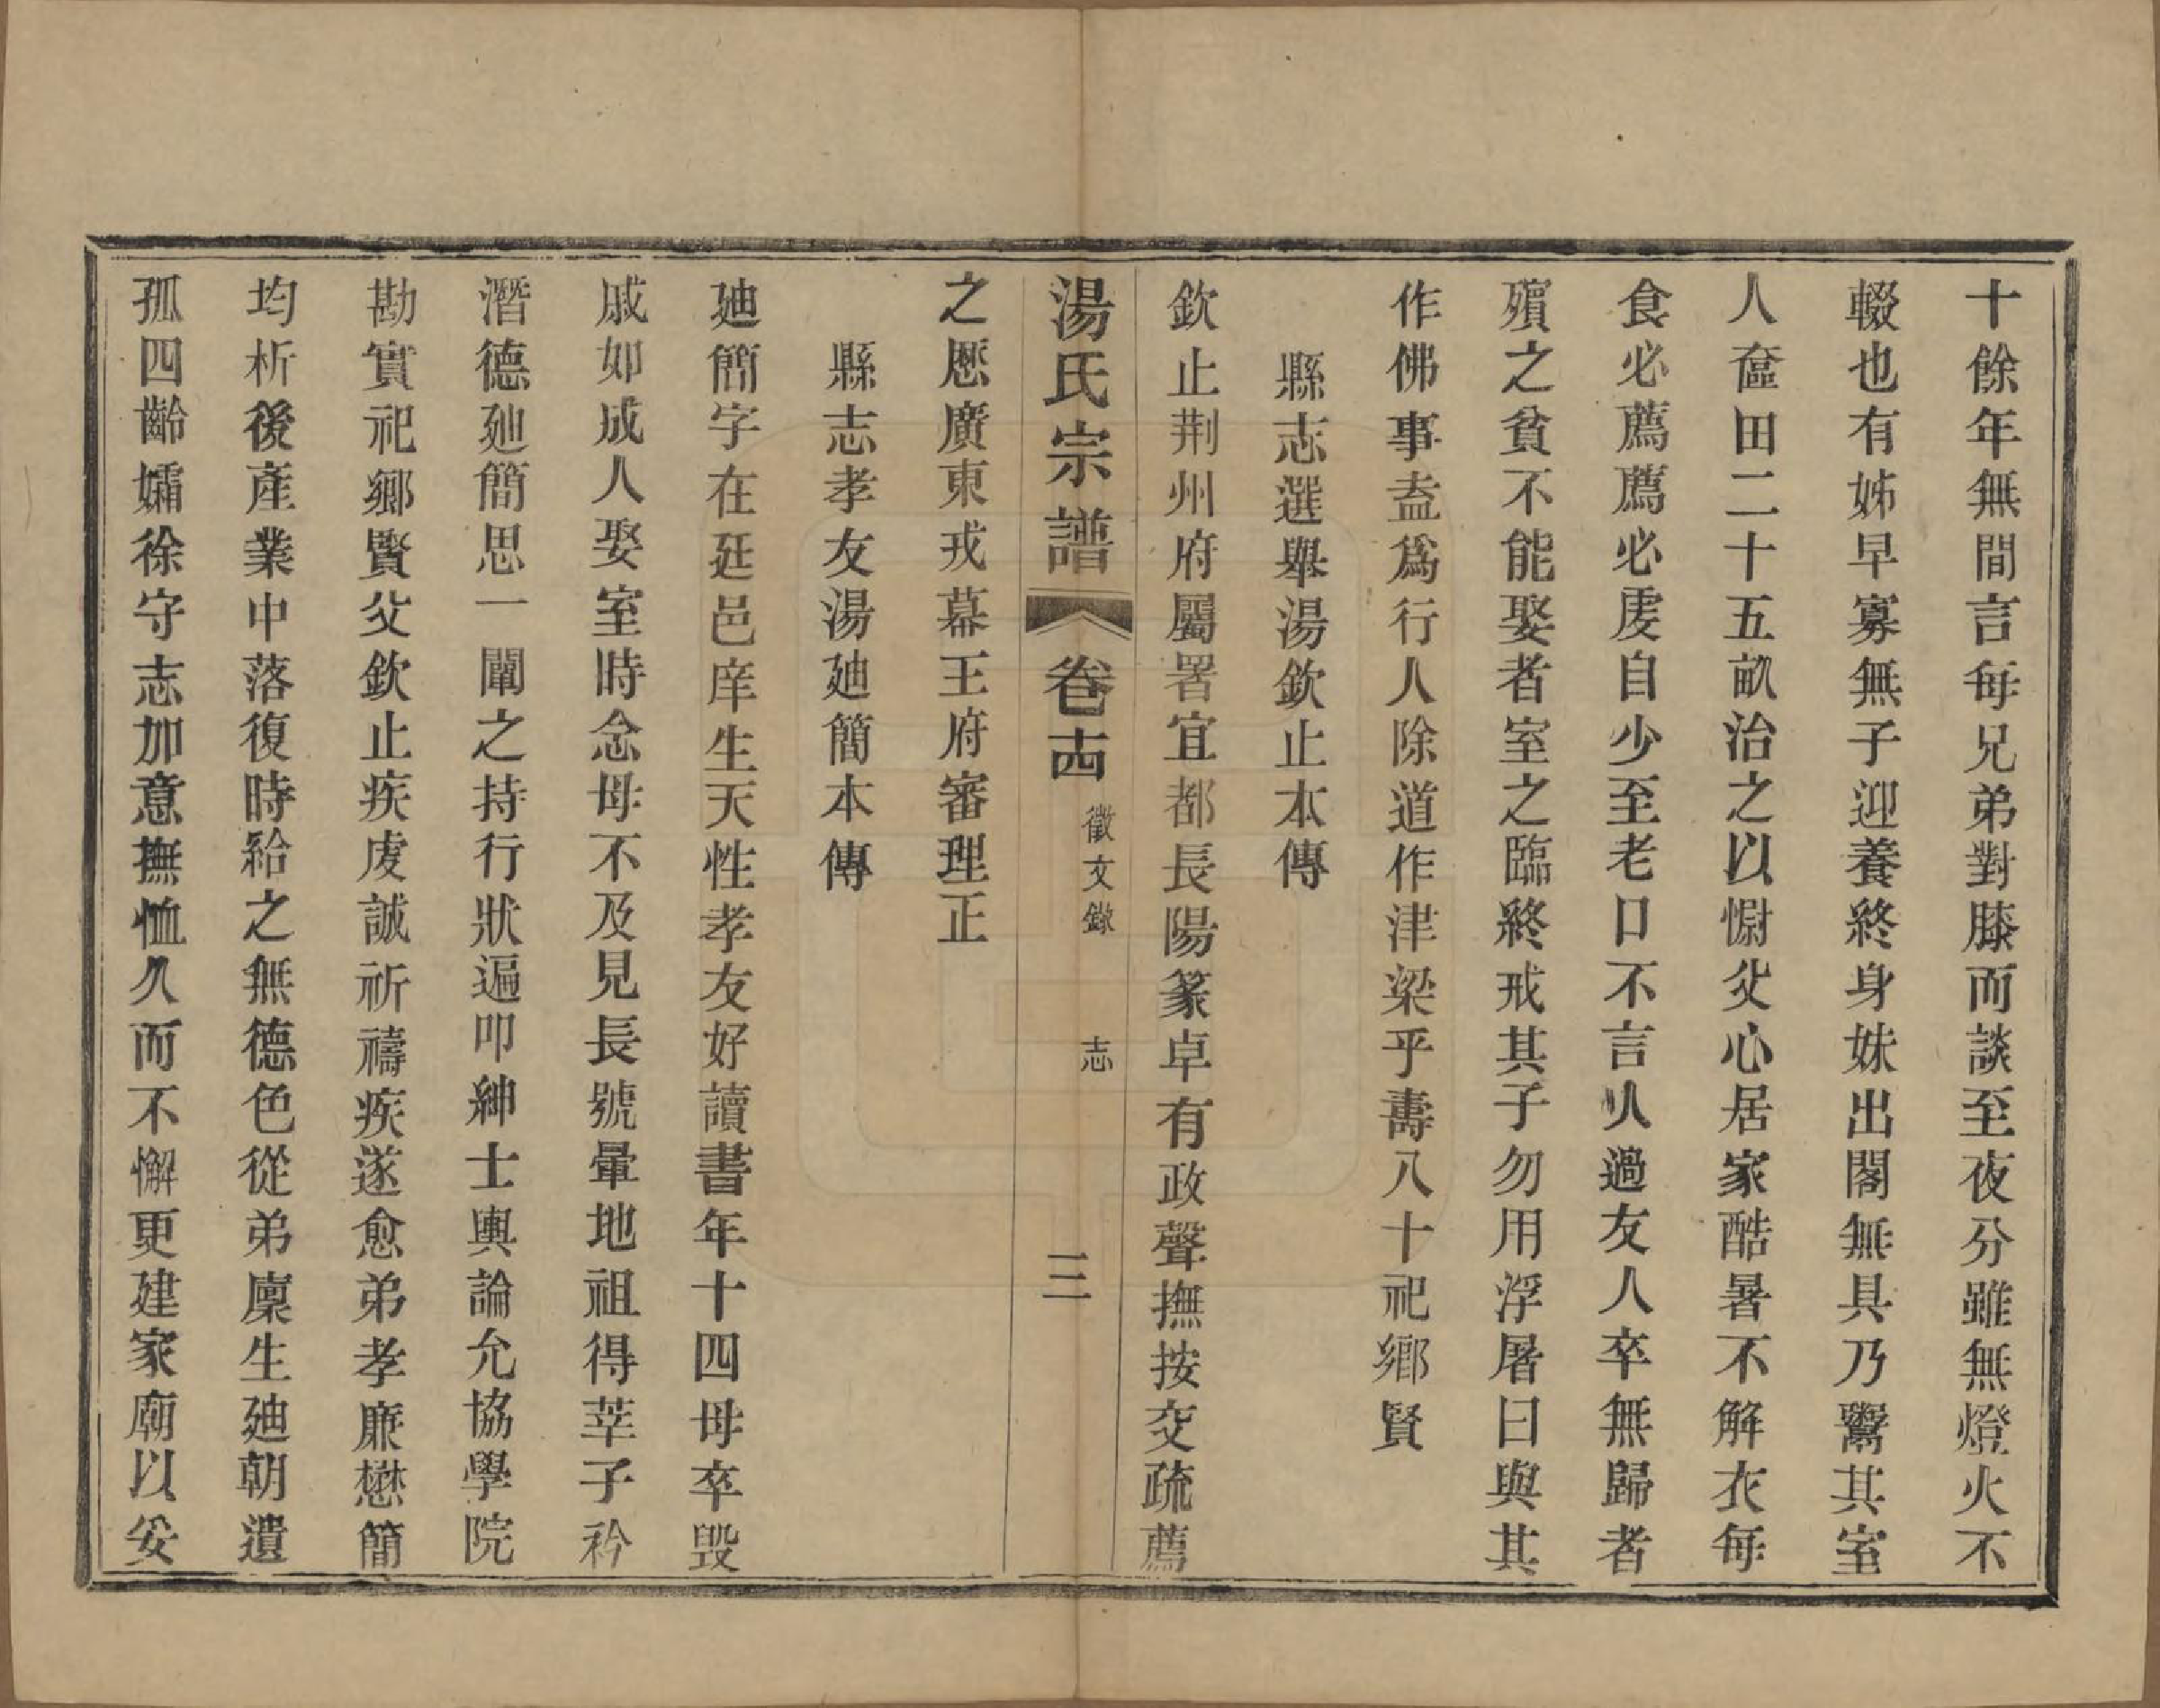 十餘年無間言每兄弟對膝而談至夜分雖無燈火不
輟也有姊早寡無子迎養終身妹出閣無具乃鬻其室
人奩田二十五畝治之以慰父心居家酷暑不解衣每
食必薦薦必虔自少至老口不言人過友人卒無歸者
殯之貧不能娶者室之臨終戒其子勿用浮屠曰與其
作佛事盍爲行人除道作津梁乎壽八十祀鄉賢
縣志選舉湯欽止本傳
欽止荆州府屬署宜都長陽篆卓有政聲撫按交疏薦
湯氏宗譜
卷十四
徵文錄
志
三
之歷廣東戎幕王府審理正
縣志孝友湯廸簡本傳
廸簡字在廷邑庠生天性孝友好讀書年十四母卒毁
戚如成人娶室時念母不及見長號暈地祖得莘子衿
潛德廸簡思一闡之持行狀遍叩紳士輿論允協學院
勘實祀鄉賢父欽止疾虔誠祈禱疾遂愈弟孝廉懋簡
均析後產業中落復時給之無德色從弟廩生廸朝遺
孤四齡孀徐守志加意撫恤久而不懈更建家廟以妥